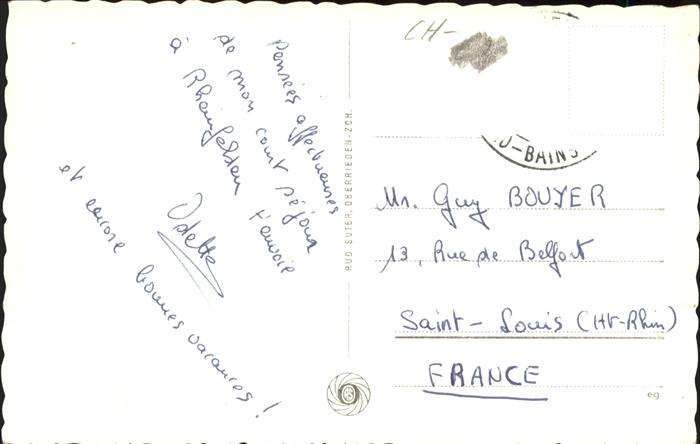 Pensées affectueuses
de mon court séjour
à Rheinfelden t'envoie
Odette
et encore bonnes vacances !
RUD. SUTER, OBERRIEDEN-ZCH.
CH-
-BAINS
Mr. Guy BOUYER
13, Rue de Belfort
Saint-Louis (Ht-Rhin)
FRANCE